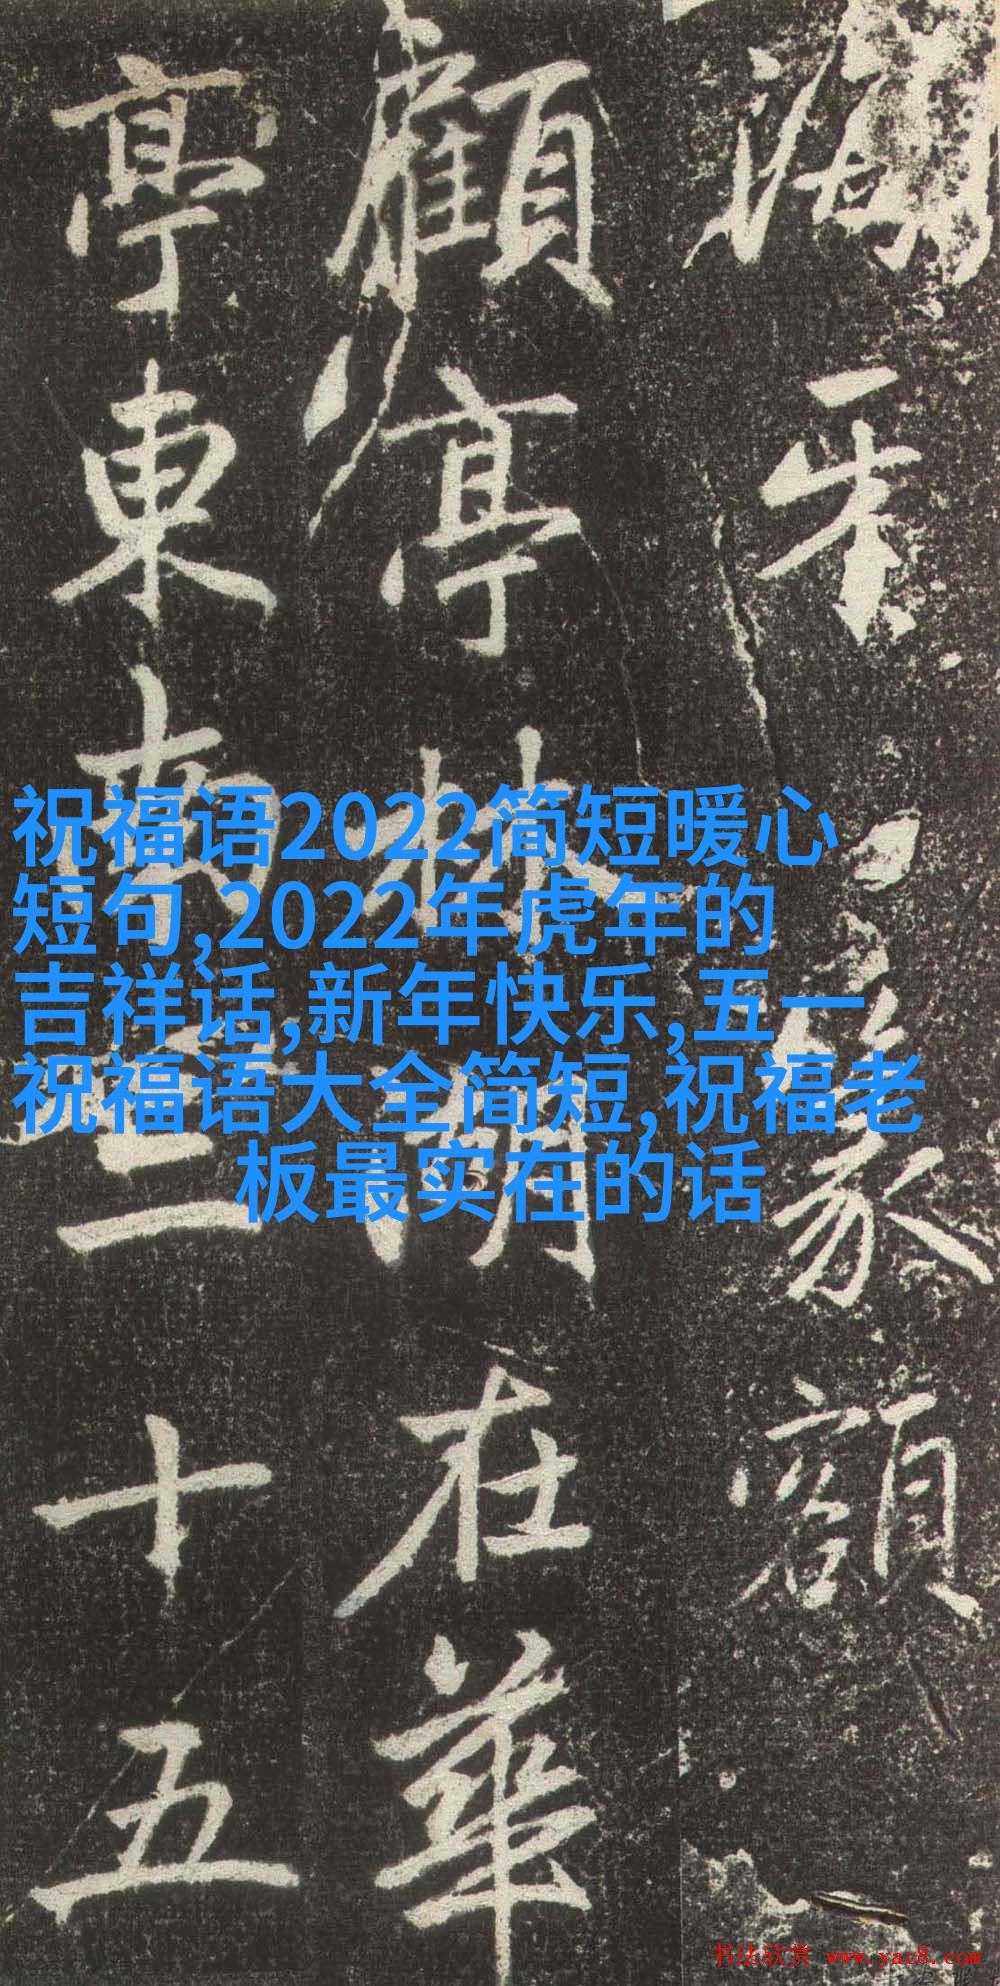 篆額
顧亭林湖在華
亭東南三十五
祝福语2022简短暖心
短句,2022年虎年的
吉祥话,新年快乐,五一
祝福语大全简短,祝福老
板最实在的话
书法欣赏 www.yac8.com